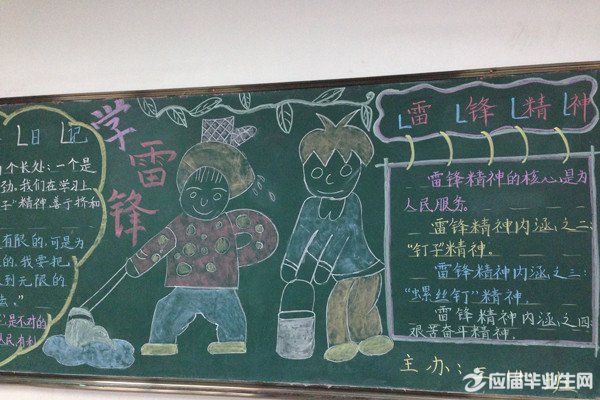 日记
个长处:一个是
劲,我们在学习上
子"精神,善于挤和
有限的,可是为
的,我要把
到无限的
去。"
是不对的
人民有利
学雷锋
雷锋精神
雷锋精神的核心是为
人民服务
雷锋精神内涵之二:
"钉子"精神。
雷锋精神内涵之三:
"螺丝钉"精神。
雷锋精神内涵之四:
艰苦奋斗精神.
主办:
应届毕业生网